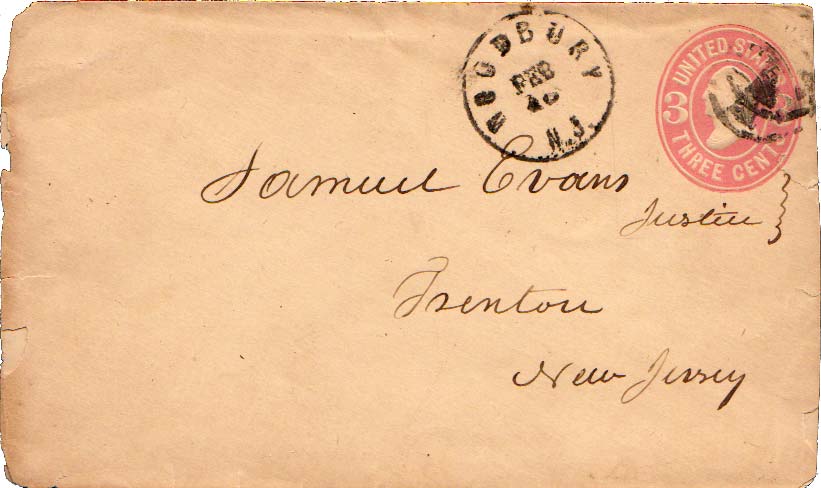 WOODBURY
FEB
N.J.
UNITED STATES
3
THREE CENTS
Samuel Evans
Justice
Trenton
New Jersey